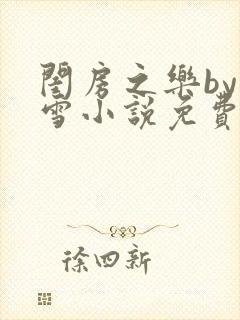 閨房之樂by
雪小說免費
徐四新